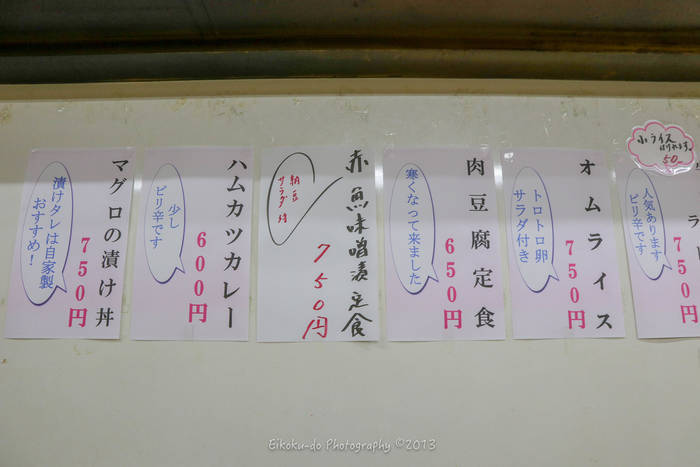 マグロの漬け丼
750円
漬けタレは自家製
おすすめ！
ハムカツカレー
600円
少し
ピリ辛です
赤魚味噌漬定食
750円
納豆
サラダ付
肉豆腐定食
650円
寒くなって来ました
オムライス
750円
トロトロ卵
サラダ付き
小ライス
50
750円
人気あります
ピリ辛です
Eikoku-do Photography ©2013